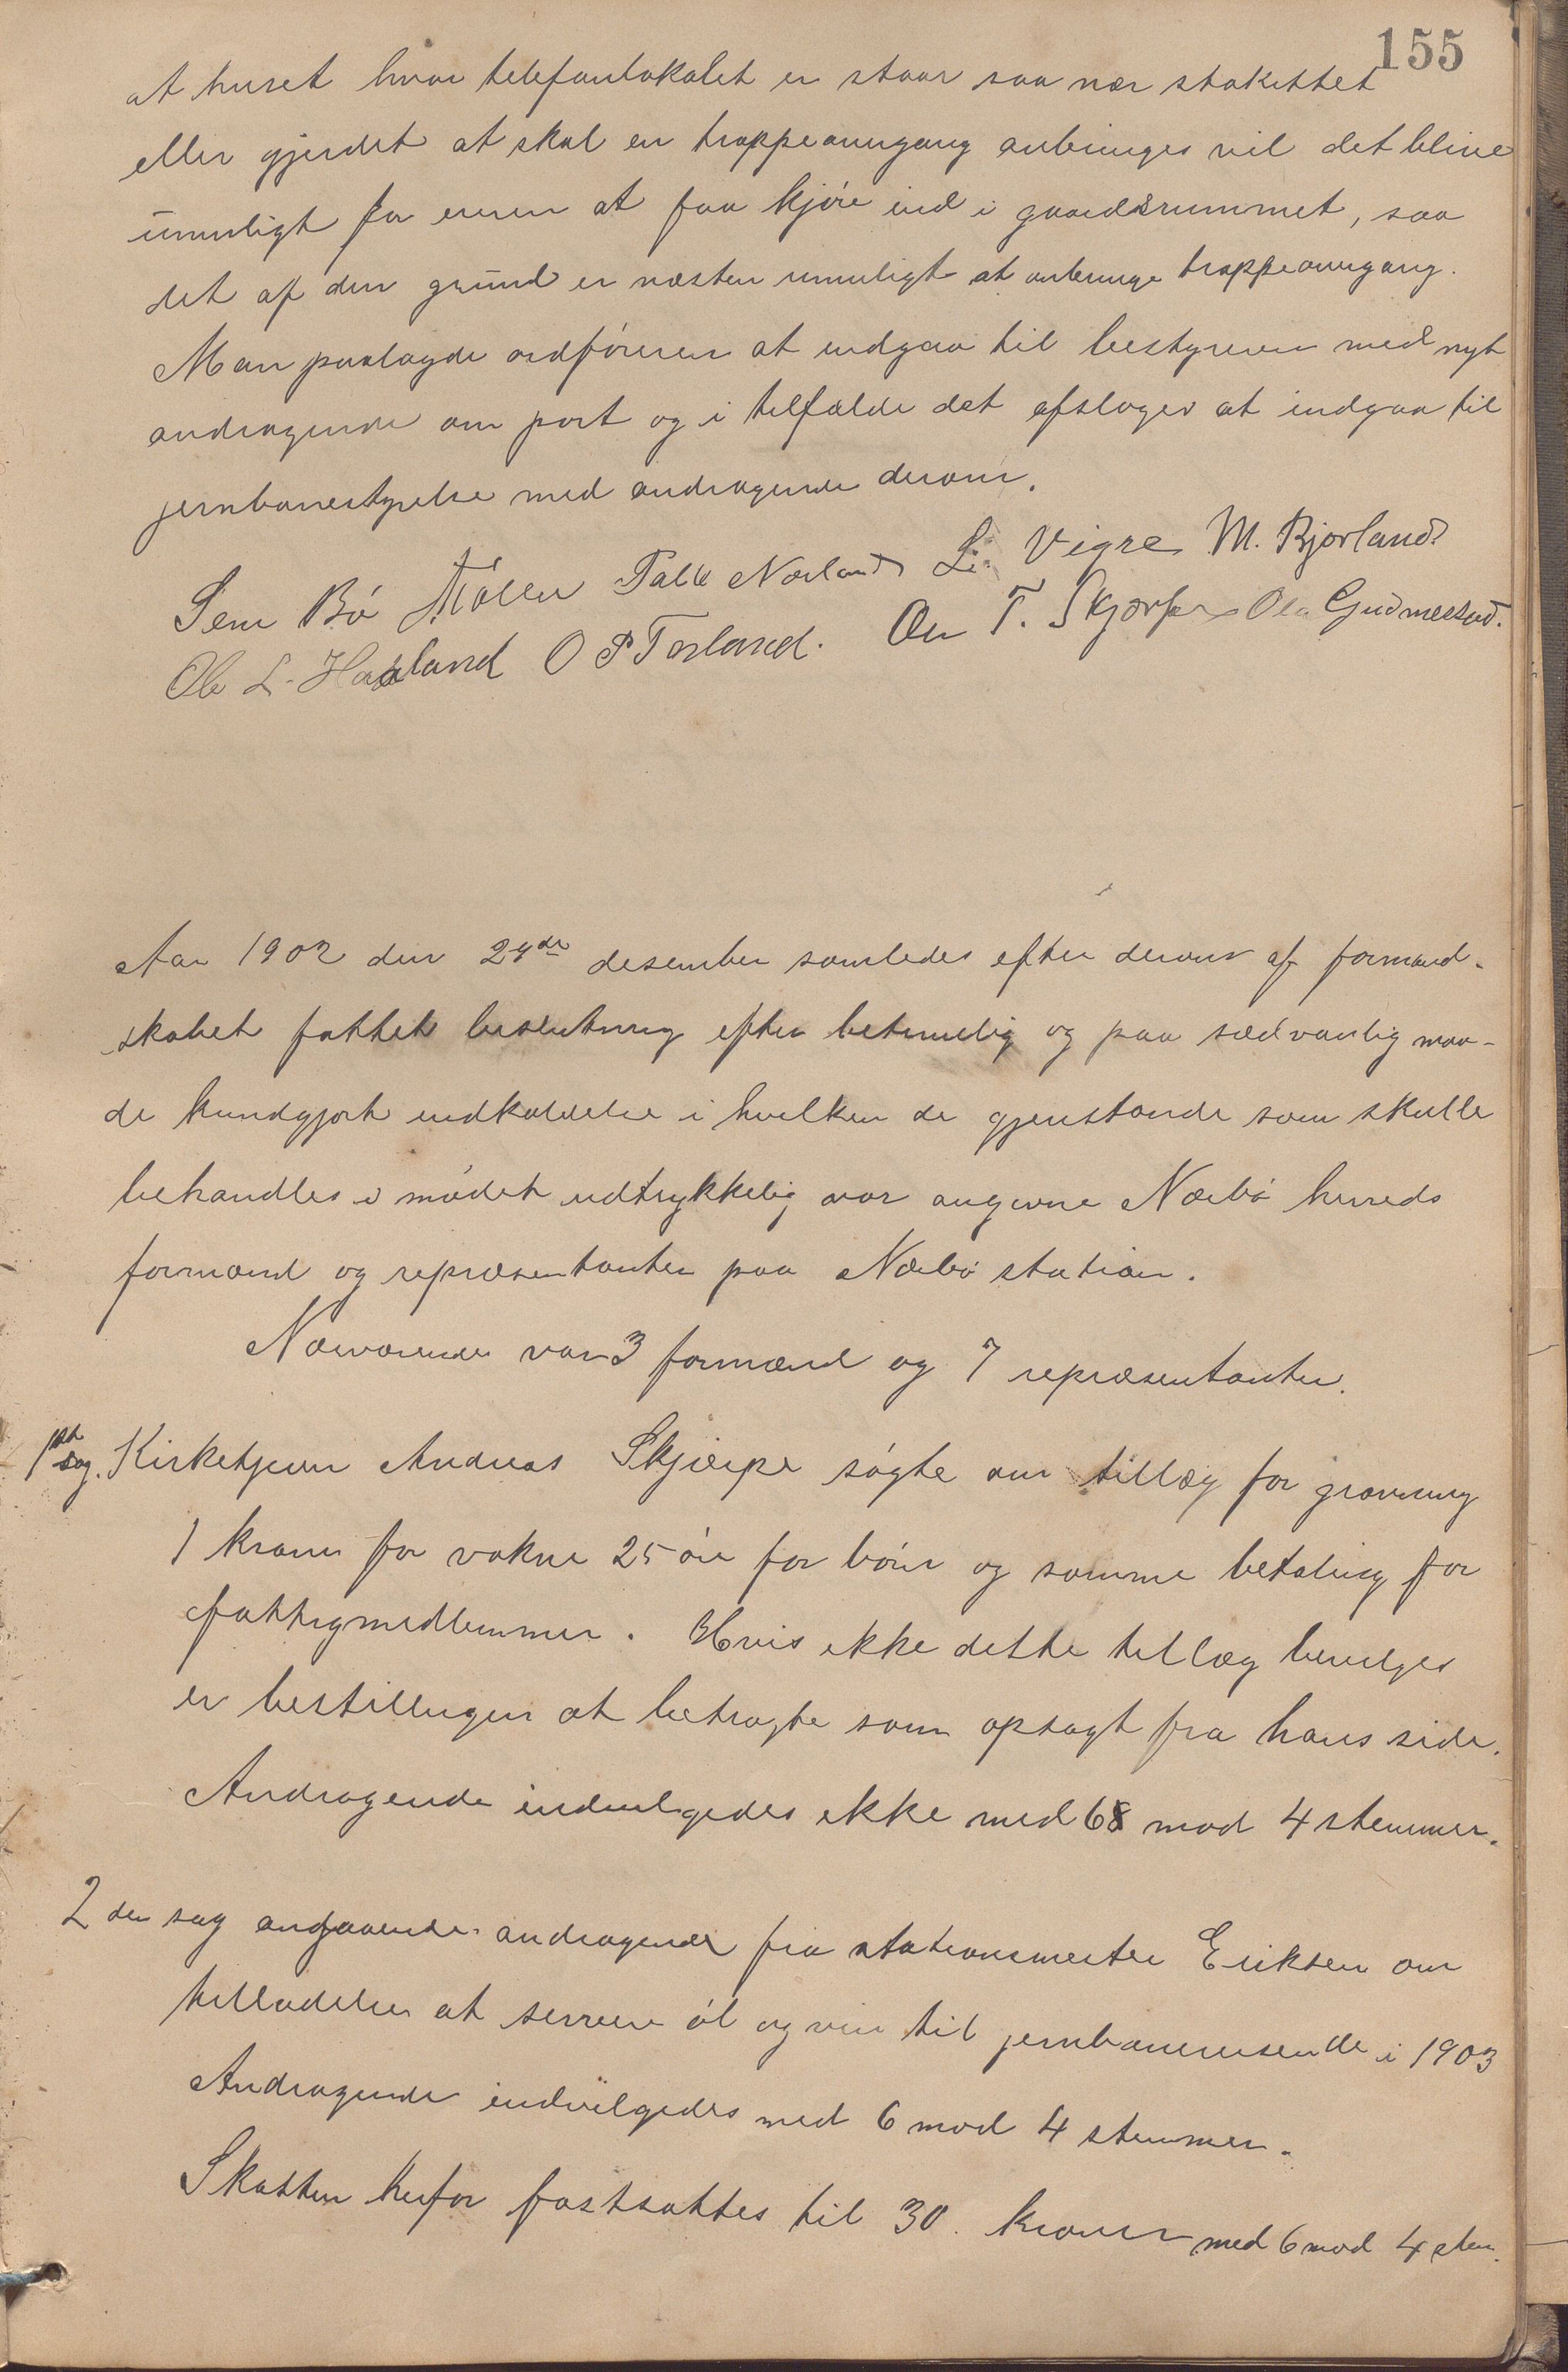 155
at huset hvor telefonlokalet er staar saa nær stakittet
eller gjerdet at skal en trappeomgang anbringes vil det blive
umuligt for enven at faa kjøre ind i gaardsrummet, saa
det af den grund er næsten umuligt at anbringe trappeomgang.
Man paalagde ordføreren at indgaa til bestyreren med nyt
andragende om port og i tilfælde det afslages at indgaa til
jernbanestyrelse med andragende derom.
Sem Bö Möller Talle Nærland L. Vigre M. Bjorland
Ole L. Haaland O P Torland. Ole T. Skjærpe Ola Gudmestad.
Aar 1902 den 29de desember samledes efter derom af formand-
skabet fattet beslutning efter betimelig og paa sædvanlig maa-
de kundgjort indkaldelse i hvilken de gjenstande som skulle
behandles i mødet udtrykkelig var angivne Nærbø herreds
formænd og repræsentanter paa Nærbø station.
Nærværende var 3 formænd og 7 repræsentanter.
1ste sag. Kirketjener Andreas Skjærpe søgte om tillæg for gravning
1 krone for vokne 25 øre for børn og samme betaling for
fattigmedlemmer. Hvis ikke dette tillæg bevilges
er bestillingen at betragte som opsagt fra hans side.
Andragende indvilgedes ikke med 6 mod 4 stemmer.
2den sag angaaende andragende fra stationsmester Eriksen om
tilladelse at servere øl og vin til jernbanereisende i 1903
Andragende indvilgedes med 6 mod 4 stemmer.
Skatten herfor fastsattes til 30 kroner med 6 mod 4 stem.